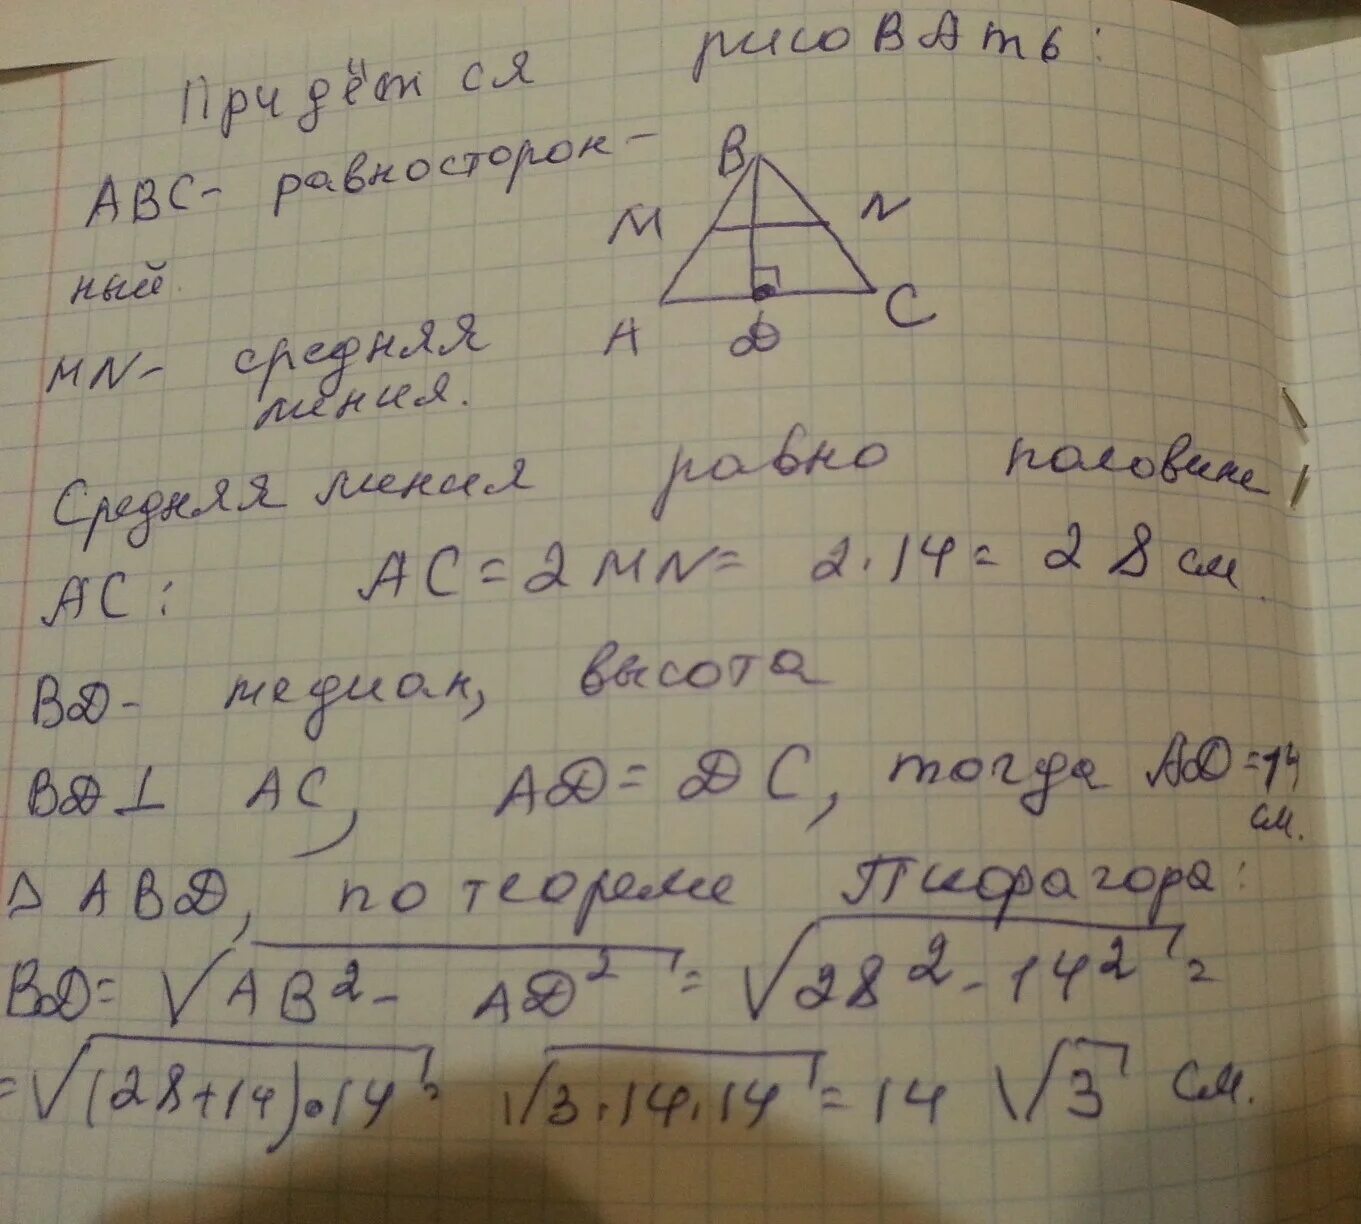 Придётся рисоВАть:
АВС- равносторон-
ный.
MN- средняя
линия.
B
M N
A D C
Средняя линия равно половине
АС: АС = 2MN = 2·14 = 28 см.
BD- медиан, высота
BD⊥ AC, AD = DC, тогда AD=14
см.
△ ABD, по теореме Пифрагора:
BD= √AB² - AD² = √28² - 14² =
= √(28+14)·14 = √3·14·14 = 14 √3 см.